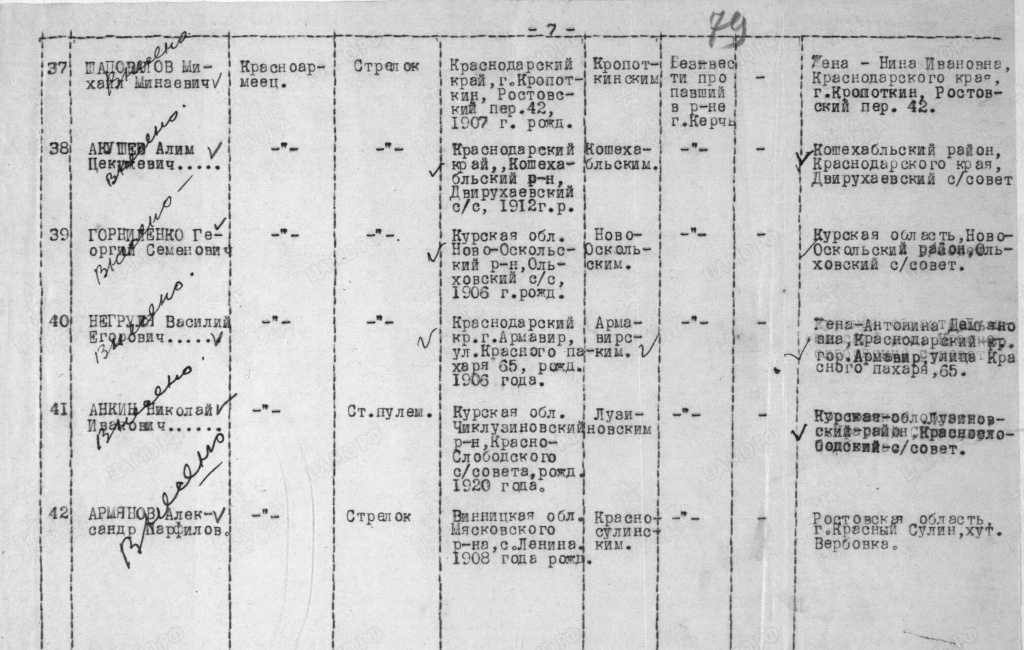 - 7 -
79
37
ШАПОВАЛОВ Ми-
хаил Минаевич
Красноар-
меец.
Стрелок
Краснодарский
край,г.Кропот-
кин, Ростовс-
кий пер.42,
1907 г. рожд.
Кропот-
кинским
Безвес
ти про
павший
в р-не
г.Керчь
-
Жена - Нина Ивановна,
Краснодарского края,
г.Кропоткин, Ростов-
ский пер. 42.
Внесено
38
Алим
.....
-"-
-"-
Краснодарский
край,,Кошеха-
бльский р-н,
Двирухаевский
с/с, 1912г.р.
Кошеха-
бльским.
-"-
-
Кошехабльский район,
Краснодарского края,
Двирухаевский с/совет
Внесено
39
ГОРНИЛЕНКО Ге-
оргий Семенович
-"-
-"-
Курская обл.
Ново-Оскольс-
кий р-н,Оль-
ховский с/с,
1906 г.рожд.
Ново-
Осколь-
ским.
-"-
-
Курская область,Ново-
Оскольский район,Оль-
ховский с/совет.
Внесено
40
Василий
Егорович......
-"-
-"-
Краснодарский
кр.г.Армавир,
ул.Красного па-
харя 65, рожд.
1906 года.
Арма-
вирс-
ким.
-"-
-
Жена-Антонина Демьяно
вна,Краснодарский кр.
гор.Армавир улица Кра
сного пахаря,65.
Внесено
41
АНКИН Николай
Иванович......
-"-
Ст.пулем.
Курская обл.
Чиклузиновский
р-н,Красно-
Слободского
с/совета,рожд.
1920 года.
Лузи-
новским
-"-
-
Курская обл.Лузинов-
ский район,Красносло-
бодский с/совет.
Внесено
42
АРМЯНОВ Алек-
сандр Парфилов.
-"-
Стрелок
Винницкая обл.
Мясковского
р-на,с.Ленина.
1908 года рожд.
Красно-
сулинс-
ким.
-"-
-
Ростовская область,
г.Красный Сулин,хут.
Вербовка.
Внесено